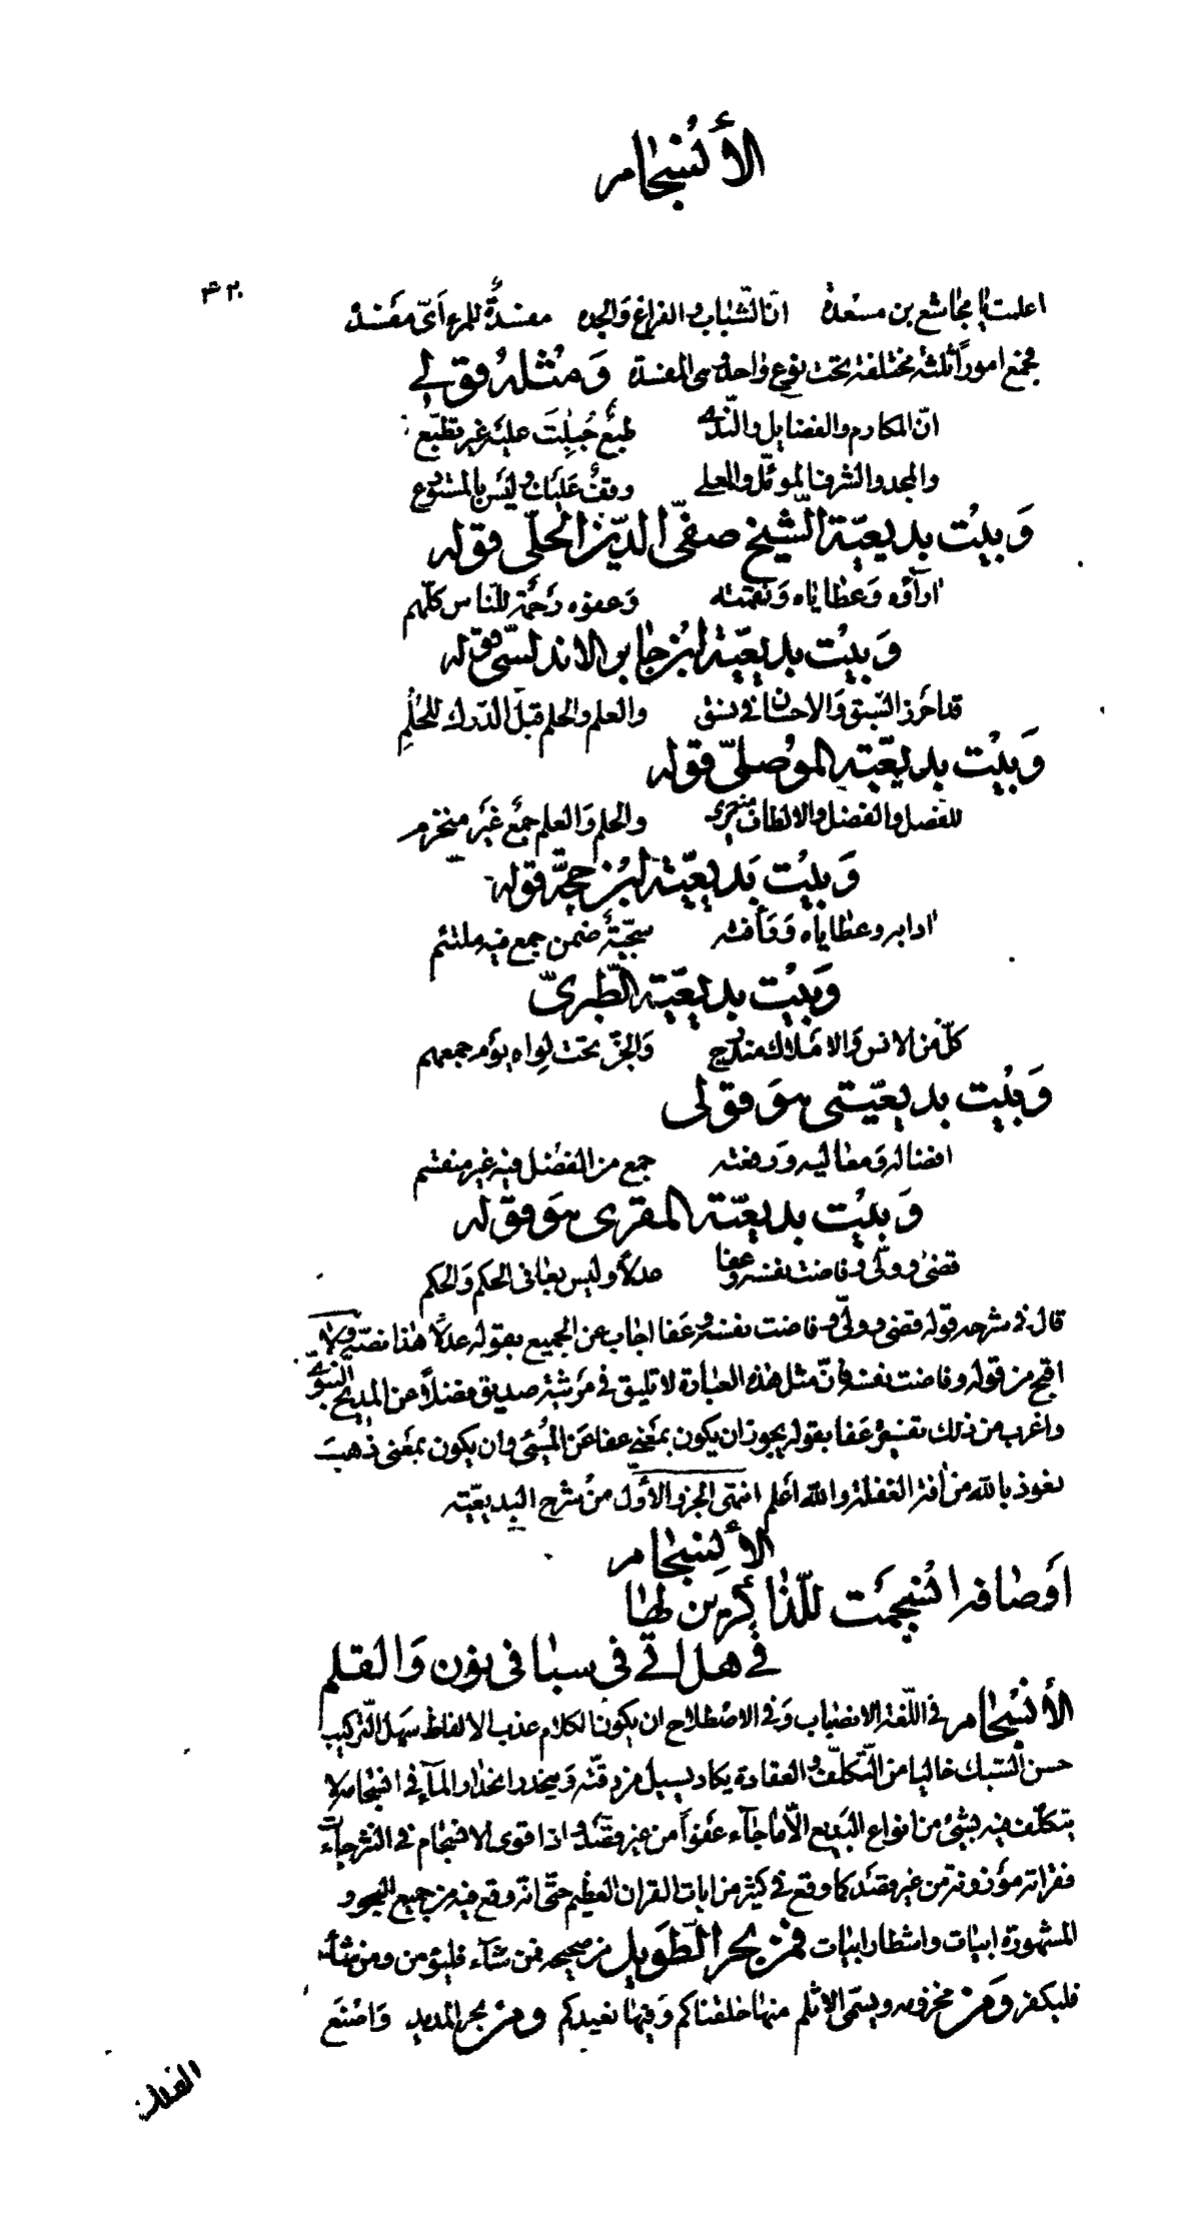 الأنسجام
۴۲۰
اعلمت يا مجاشع بن مسعدة انّ الشّباب و الفراغ وَالجده مفسدةٌ للمرء اَىّ مفسده
فجمع اموراً ثلثة مختلفة تحت نوع واحد وهى المفسدة وَمثلهُ قولى
انّ المكارم والفضايل والنّدى طبعٌ جُبِلتَ عليهِ غير تطبّع
والمجد والشرف الموثّل والعلى وقفٌ عَلَيك و ليسَ بالمتنوّع
وَبيت بديعيّة الشّيخ صفىّ الدّين الحلّى قوله
اراؤه وَعطاياه وَنقمته وَعفوه رَحمة للنّاس كلّهم
وَبيت بديعيّة ابن جابر الاندلسى قوله
قد احرز السّبق وَالاحسان فى نسق والعلم والحلم قبل الدّرك للحُلُمِ
وَبيت بديعيّة الموصلىّ قوله
للفصل والفضل والالطاف منه يرى والحلم وَالعلم جمعٌ غَير منخرم
وَبيت بديعيّة ابن حجّة قوله
ادابه وعطاياه وَرَأفته سجيّةٌ ضمن جمع فيه ملتئم
وَبيت بديعيّة الطّبرىّ
كلٌّ من الانس وَالاملاك مندرج وَالجنّ تحت لواه يوم جمعهم
وَبيت بديعيّتى هوَ قولى
افضاله وَمعاليه وَرفعته جمع من الفضل فيه غير منقسم
وَبيت بديعيّة المقرى هوَ قوله
قضىٰ و ولّى و فاضت نفسه وعفا عدلاً وليس يعابى الحكم وَالحكم
قال فى شرحه قوله قضى و ولّى و فاضت نفسه وعَفا اجاب عن الجميع بقوله عدلاً هذا نصّه ولا
اقبح من قوله وفاضت نفسه فانّ مثل هذه العبارة لا تليق فى مرثية صديق فضلاً عن المديح النبوىّ
واغرب من ذلك تفسيره عَفا بقوله يجوز ان يكون بمعنى عفا عَن المُسئ وان يكون بمعنى ذهب
نعوذ بالله من افة الغفلة والله اَعلم انتهى الجزو الأوّل من شرح البديعيّة
الأنسجام
اَوصافه انسجمت للذّاكرين لها
فى هل اتى فى سبا فى نون وَالقلم
الأنسجام فى اللّغة الانصباب وَفى الاصطلاح ان يكون الكلام عذب الالفاظ سهل التّركيب
حسن السّبك خاليا من التّكلّف و العقادة يكاد يسيل من رقّته وَينحدر انحدار المآء فى انسجامه لا
يتكلّف فيه بشئ من انواع البَديع الّا ما جآء عفواً من غير قصد و اذا قوى الانسجام فى النثر جاءت
فقراته موزونة من غير قصد كما وقع فى كثير من ايات القران العظيم حتّى انّه وقع فيه من جميع البحور
المشهورة ابيات واشطار ابيات فمن بحر الطّويل من صحيحه فمن شآء فليؤمن ومن شآء
فليكفر وَمن مخرومه ويسمّى الاثلم منها خلقناكم وَفيها نعيدكم ومن بحر المديد وَاصنَع
الفلك